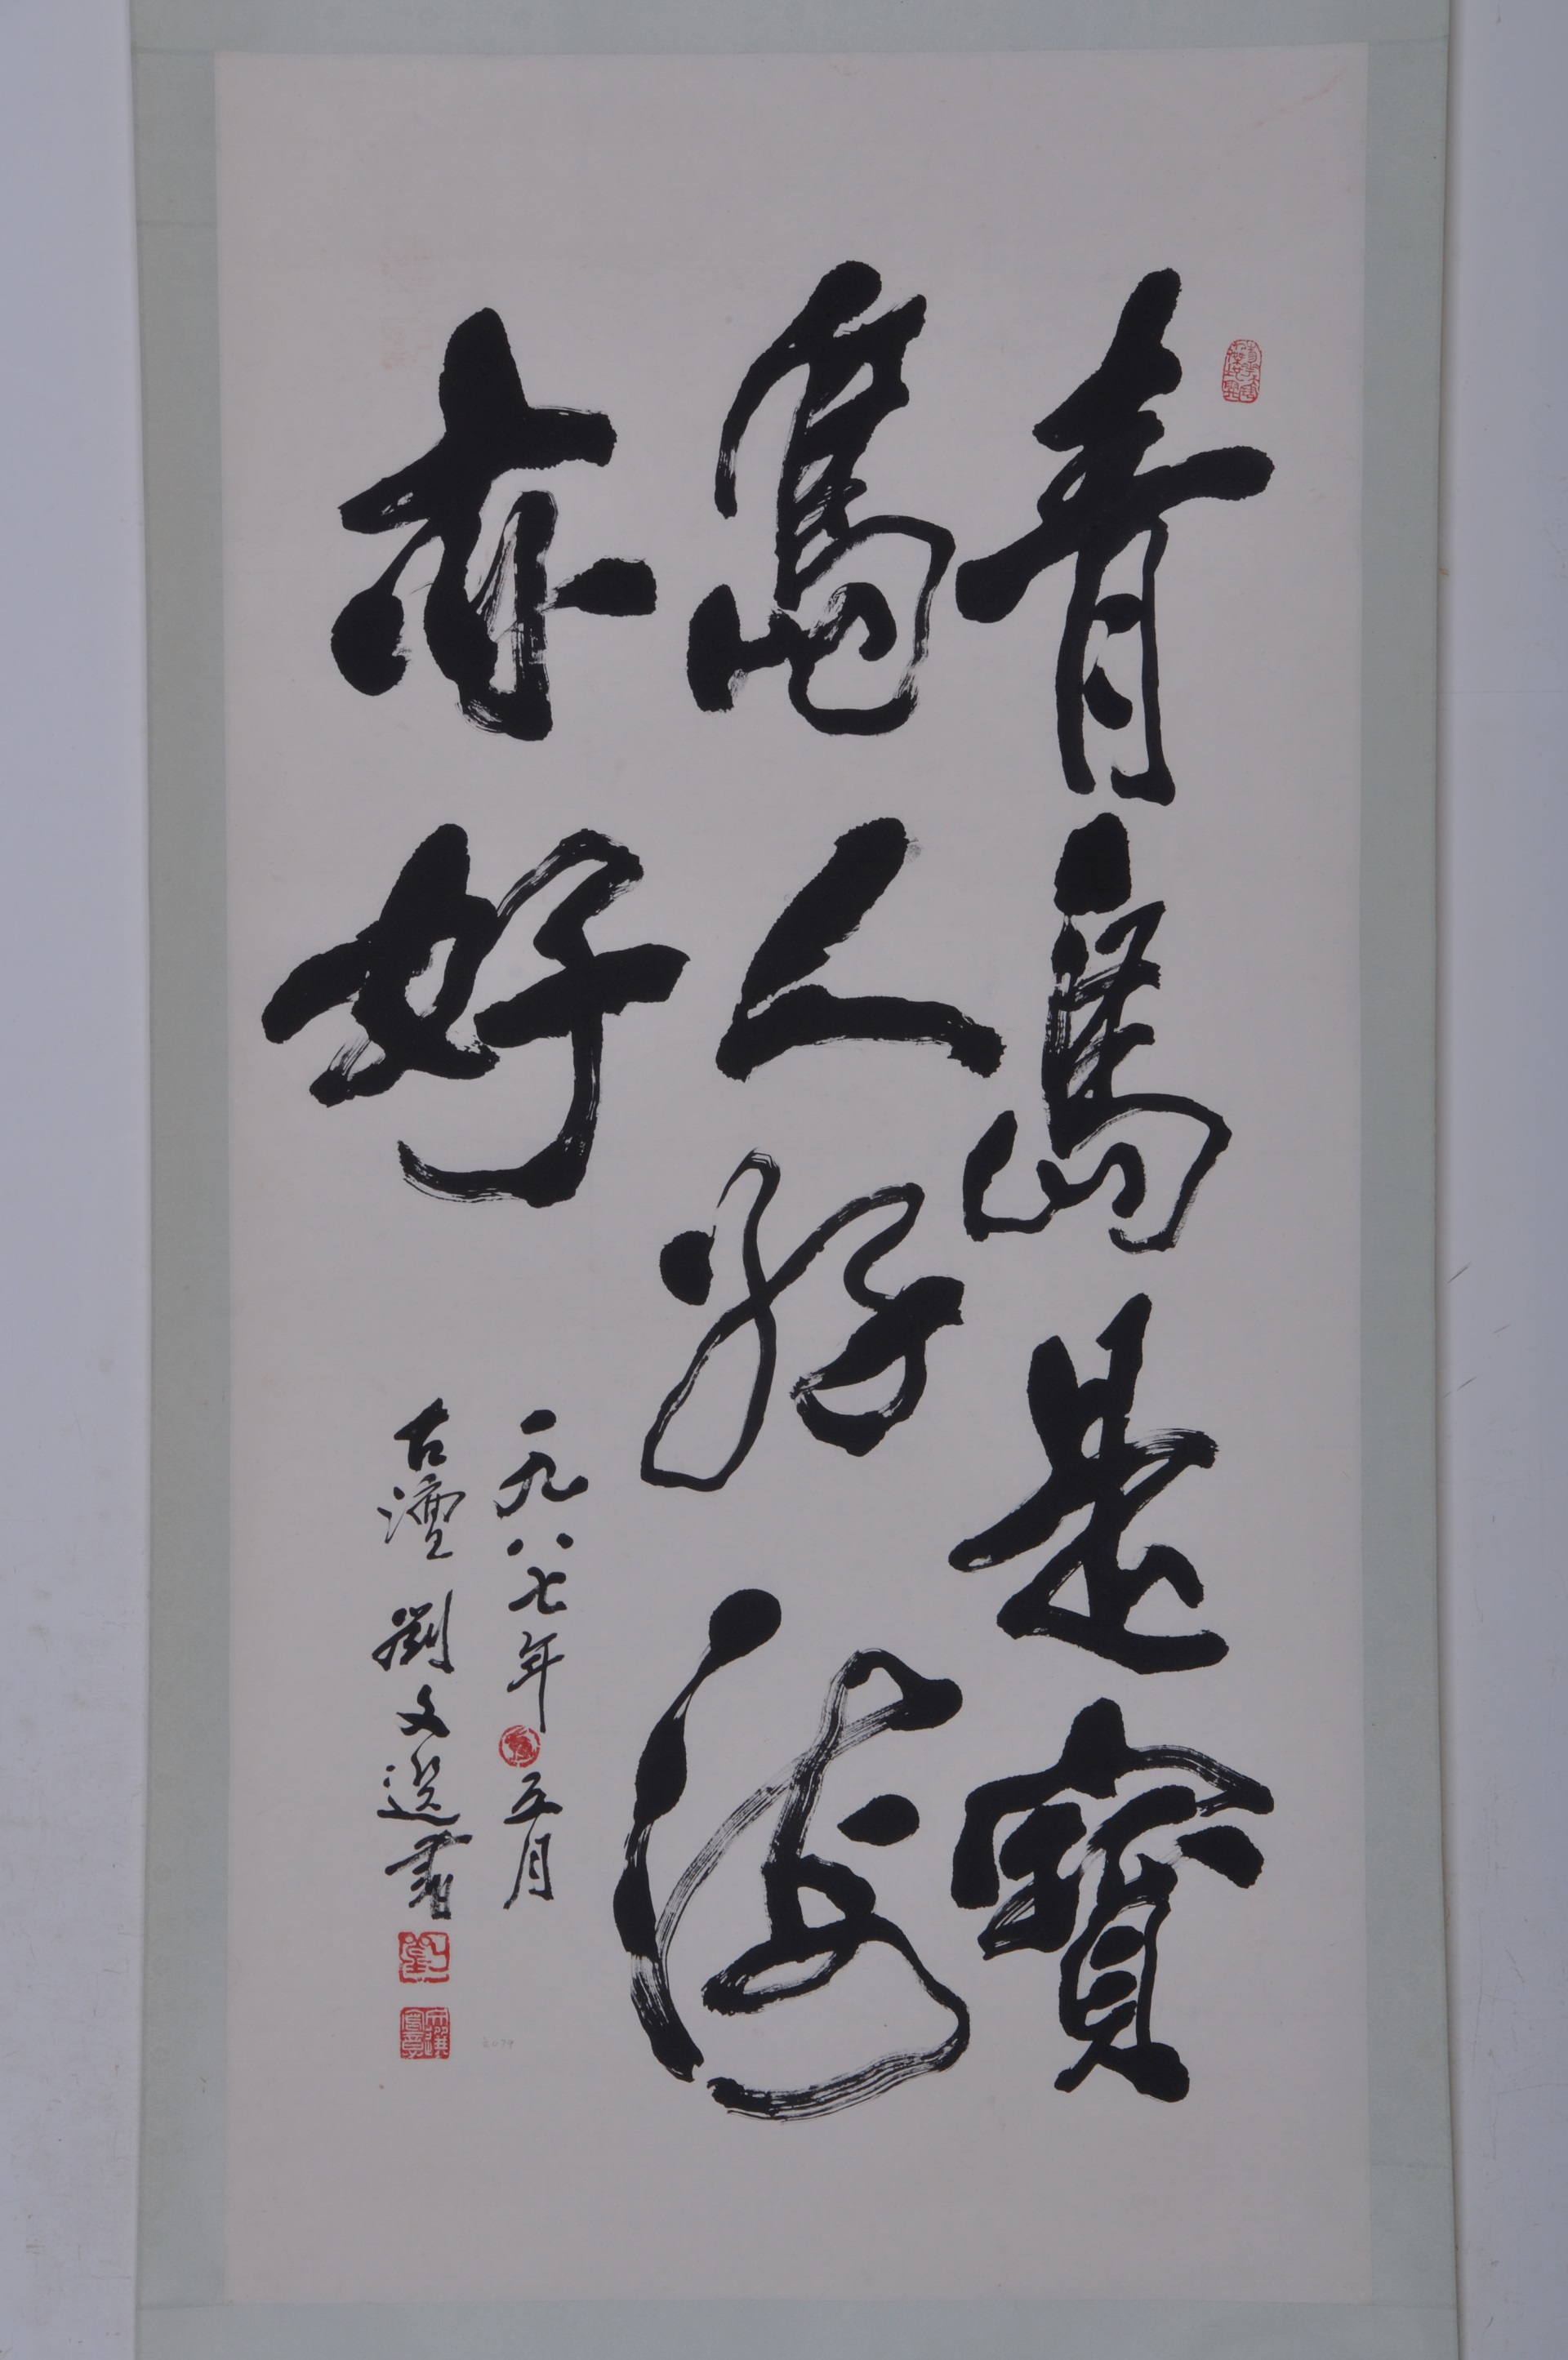 青島是寶
島人好海
亦好
一九八七年五月
古 劉文選書